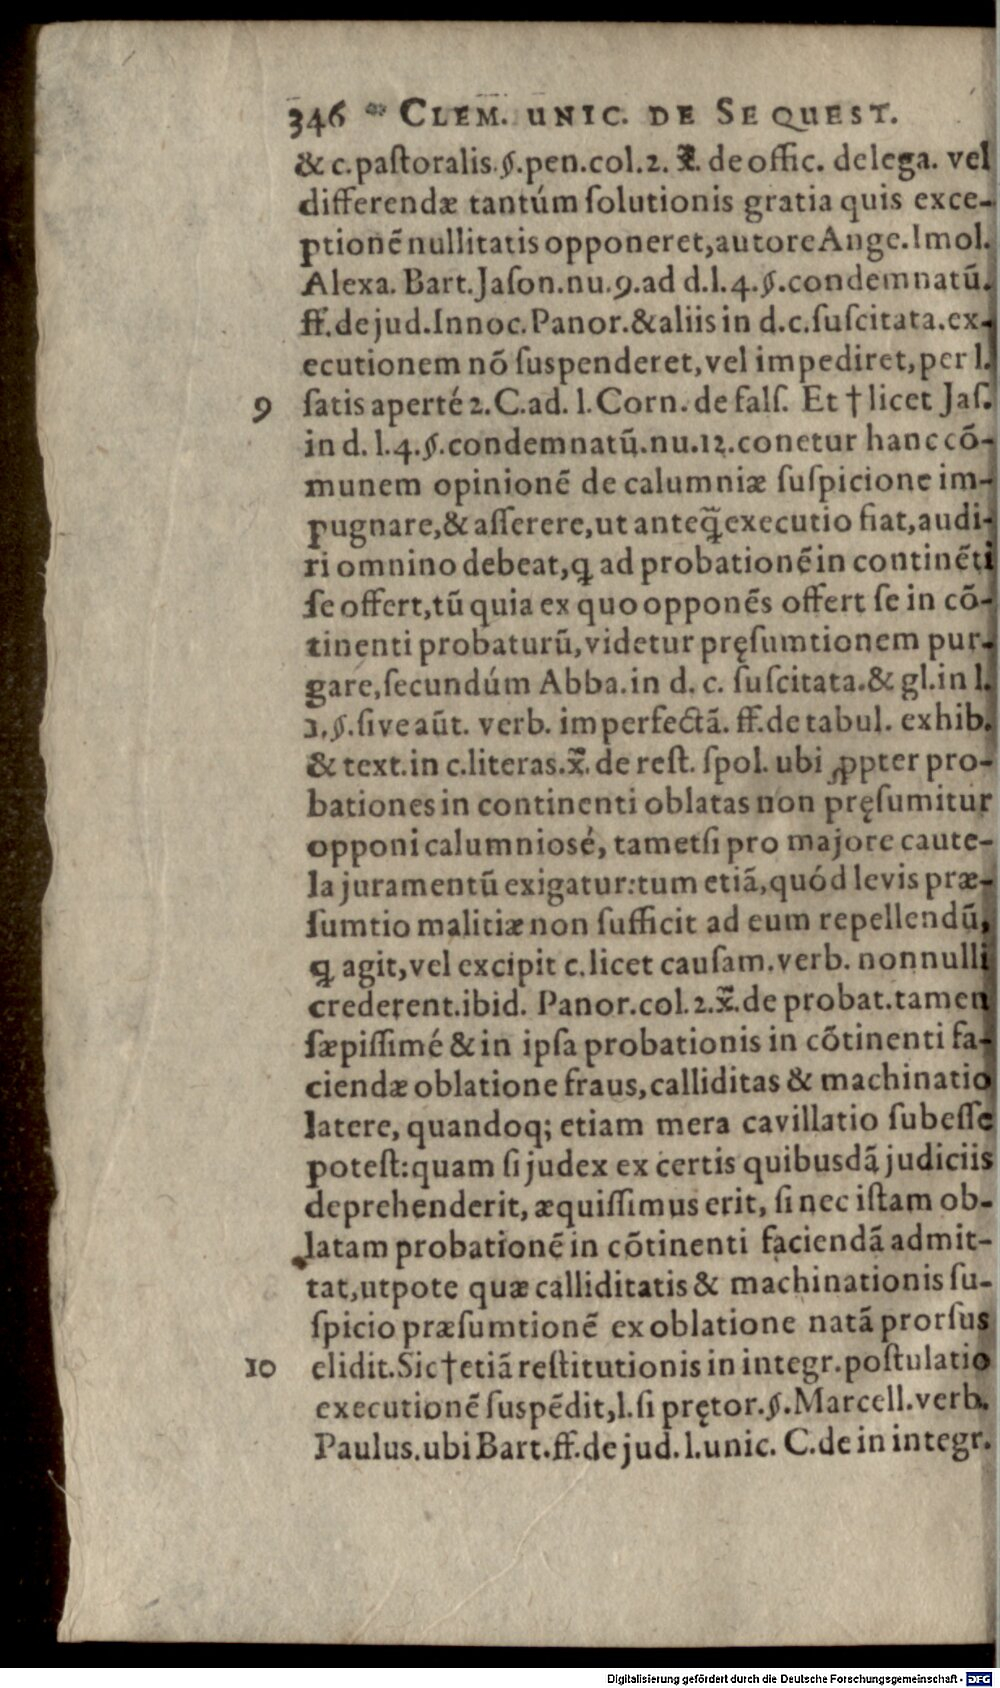 346 CLEM. UNIC. DE SEQUEST.
& c.paſtoralis.§.pen.col.2. x̄. de offic. delega. vel
differendæ tantúm ſolutionis gratia quis exce-
ptionē nullitatis opponeret,autore Ange.Imol.
Alexa. Bart.Jaſon.nu.9.ad d.l.4.§.condemnatū.
ff.de jud.Innoc.Panor.&aliis in d.c.ſuſcitata.ex-
ecutionem nō ſuſpenderet,vel impediret,per l.
9 ſatis aperté 2.C.ad. l.Corn. de falſ. Et † licet Jaſ.
in d. l.4.§.condemnatū.nu.12.conetur hanc cō-
munem opinionē de calumniæ ſuſpicione im-
pugnare,& aſſerere,ut anteq̄̃ executio fiat,audi-
ri omnino debeat,q ad probationē in continēti
ſe offert,tū quia ex quo opponēs offert ſe in cō-
tinenti probaturū,videtur pręſumtionem pur-
gare,ſecundúm Abba.in d. c. ſuſcitata.& gl.in l.
1.§.ſive aūt. verb. imperfectā. ff.de tabul. exhib.
& text.in c.literas.x̄. de reſt. ſpol. ubi ꝓpter pro-
bationes in continenti oblatas non pręſumitur
opponi calumniosé, tametſi pro majore caute-
la juramentū exigatur:tum etiā,quód levis præ-
ſumtio malitiæ non ſufficit ad eum repellendū,
q agit,vel excipit c.licet cauſam.verb. nonnulli
crederent.ibid. Panor.col.2.x̄.de probat.tamen
ſæpiſſimé & in ipſa probationis in cōtinenti fa-
ciendæ oblatione fraus,calliditas & machinatio
latere, quandoq; etiam mera cavillatio ſubeſſe
poteſt:quam ſi judex ex certis quibusdā judiciis
deprehenderit, æquiſſimus erit, ſi nec iſtam ob-
latam probationē in cōtinenti faciendā admit-
tat,utpote quæ calliditatis & machinationis ſu-
ſpicio præſumtionē ex oblatione natā prorſus
10 elidit.Sic†etiā reſtitutionis in integr.poſtulatio
executionē ſuſpēdit,l.ſi prętor.§.Marcell.verb.
Paulus.ubi Bart.ff.de jud.l.unic. C.de in integr.
Digitalisierung gefördert durch die Deutsche Forschungsgemeinschaft - DFG